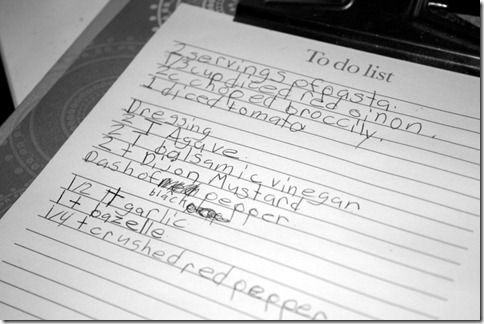 To do list
2 servings of pasta.
1/3 cup diced red oinon.
2c choped broccily.
1 diced tomato
Dressing
2 T Agave
2 T balsamic vinegan
2 t Dijon Mustard
Dash of pepper
black
1/2 T garlic
1 t bazelle
1/4 t crushed red pepper